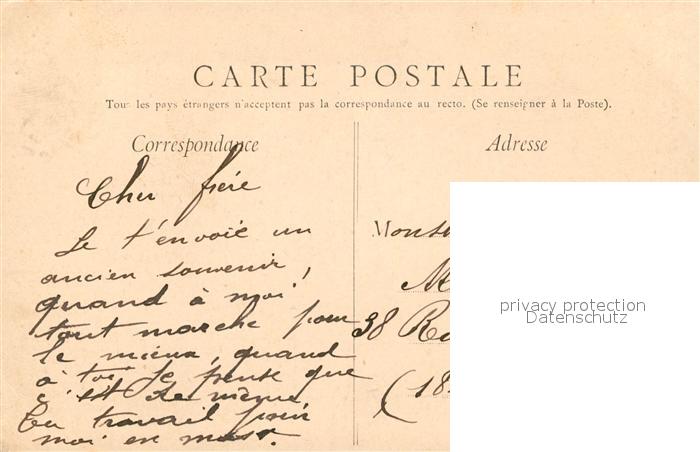 CARTE POSTALE
Tous les pays étrangers n'acceptent pas la correspondance au recto. (Se renseigner à la Poste).
Correspondance
Adresse
Cher frère
Je t'envoie un
ancien souvenir,
quand à moi
tout marche pour
le mieux, quand
à toi je pense que
c'est de même
travail pour
moi en masse.
Mons
M
38 R
(18
privacy protection
Datenschutz